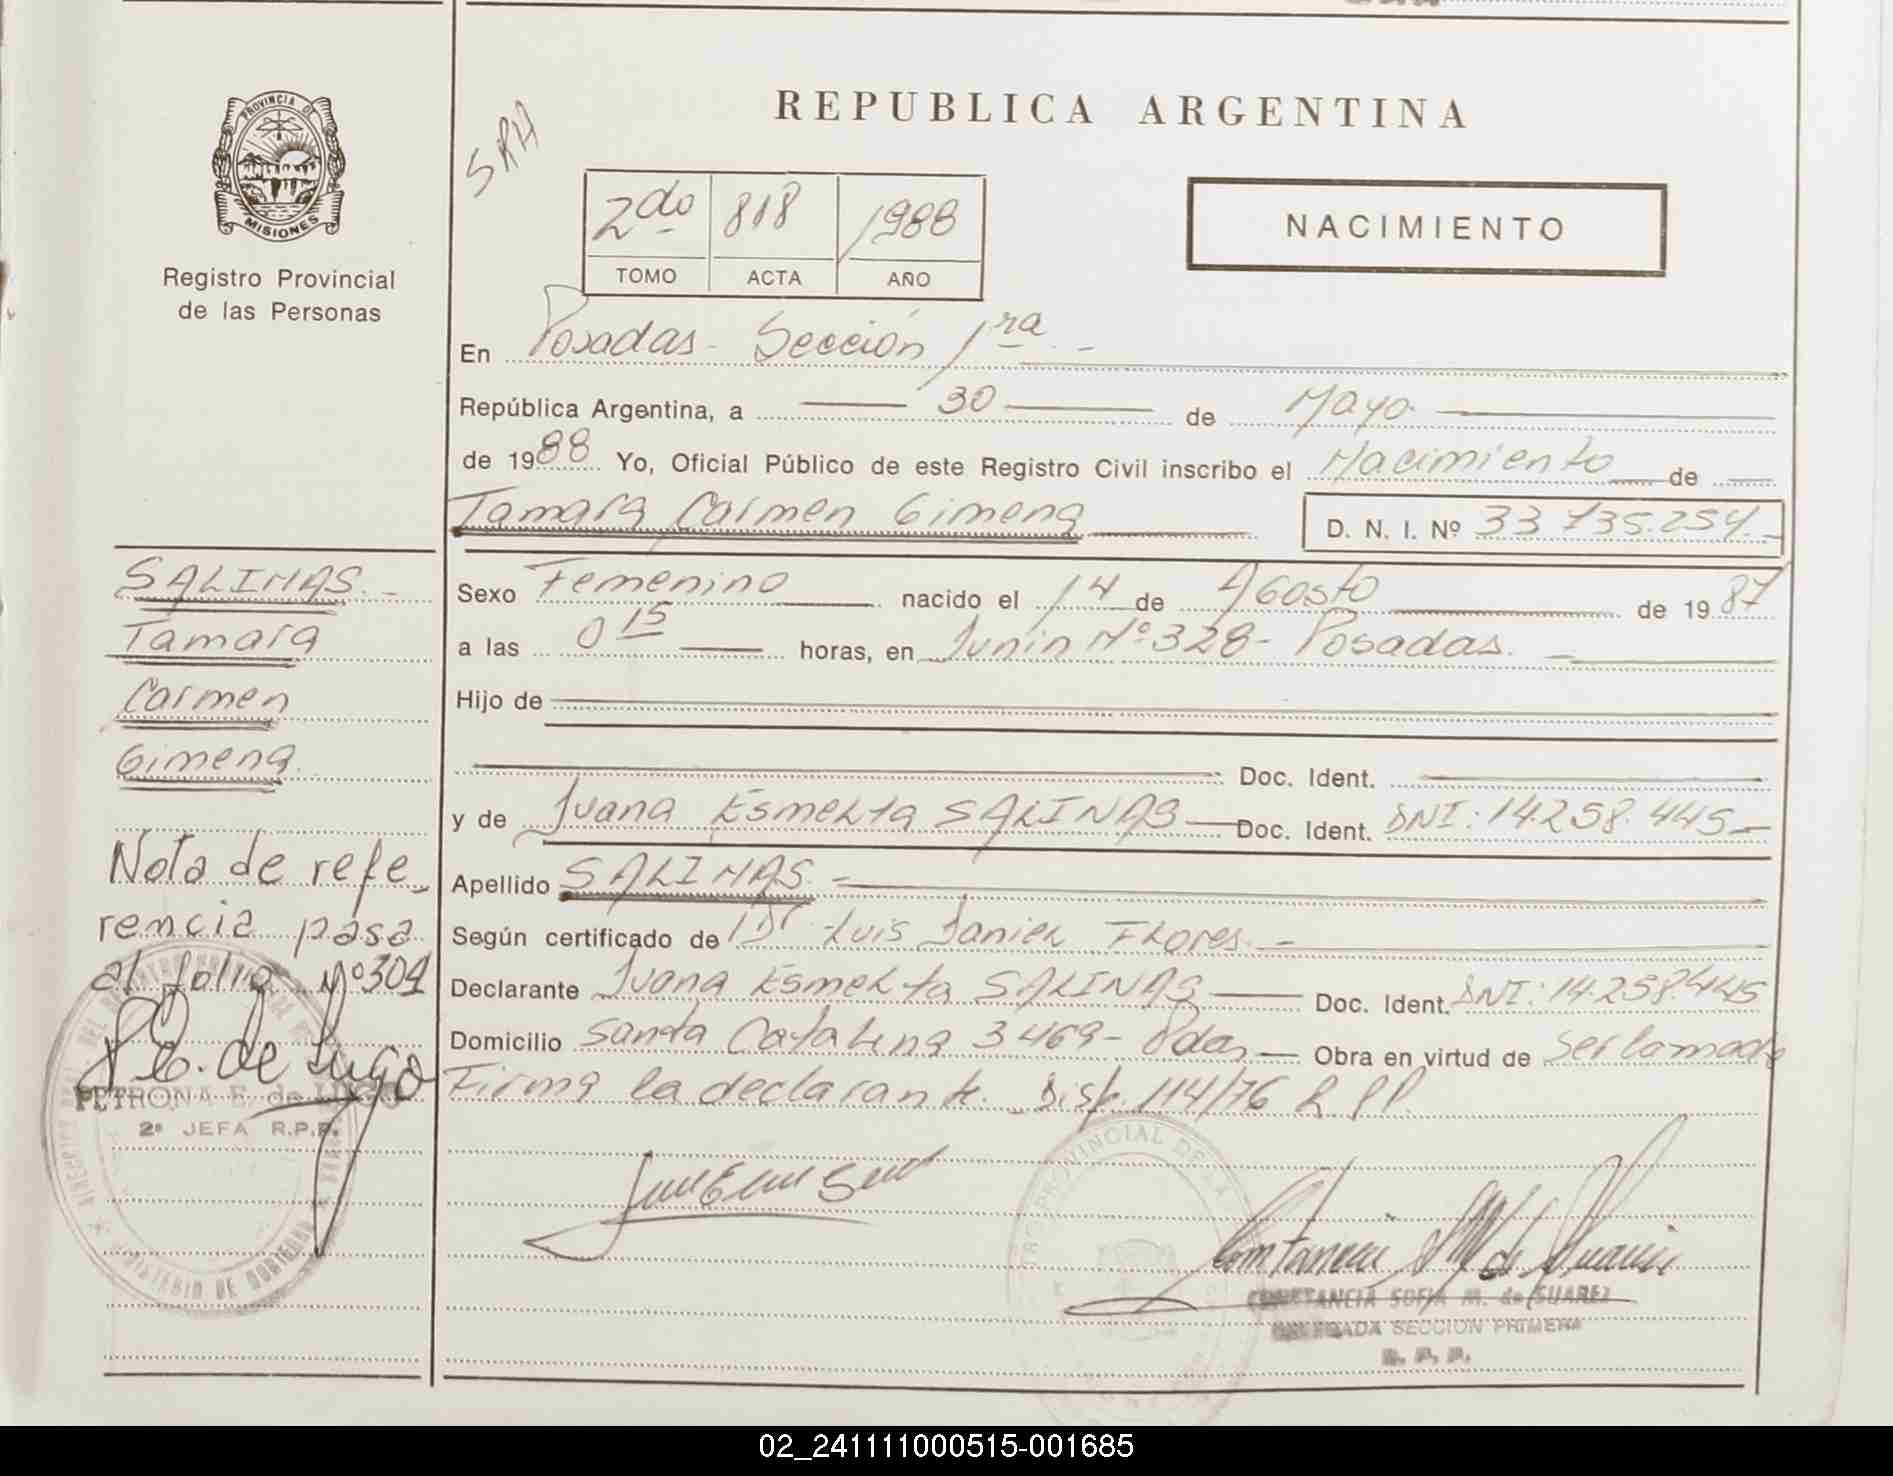 PROVINCIA DE
MISIONES
Registro Provincial
de las Personas
SALINAS.-
Tamara
Carmen
Gimena.
Nota de refe-
rencia pasa
al folio Nº 301
P. E. de Lugo
PETRONA E. de LUGO
2ª JEFA R.P.P.
MINISTERIO DE GOBIERNO
REPUBLICA ARGENTINA
2do 818 1988
TOMO ACTA AÑO
NACIMIENTO
En Posadas - Sección 1ra -
República Argentina, a 30 de Mayo
de 1988 Yo, Oficial Público de este Registro Civil inscribo el Nacimiento de
Tamara Carmen Gimena D. N. I. Nº 33 735.254.-
Sexo Femenino nacido el 14 de Agosto de 1987
a las 0 15 horas, en Junin Nº 328 - Posadas. -
Hijo de
Doc. Ident.
y de Juana Esmelta SALINAS Doc. Ident. DNI: 14.258.445-
Apellido SALINAS -
Según certificado de Dr Luis Daniel Flores. -
Declarante Juana Esmelta SALINAS Doc. Ident. DNI: 14.258.445
Domicilio Santa Catalina 3469 - Pdas Obra en virtud de ser la madre
Firma la declarante. Disp. 114/76 R.P.P.
CONSTANCIA SOFIA M. de SUAREZ
DELEGADA SECCION PRIMERA
R. P. P.
02_241111000515-001685